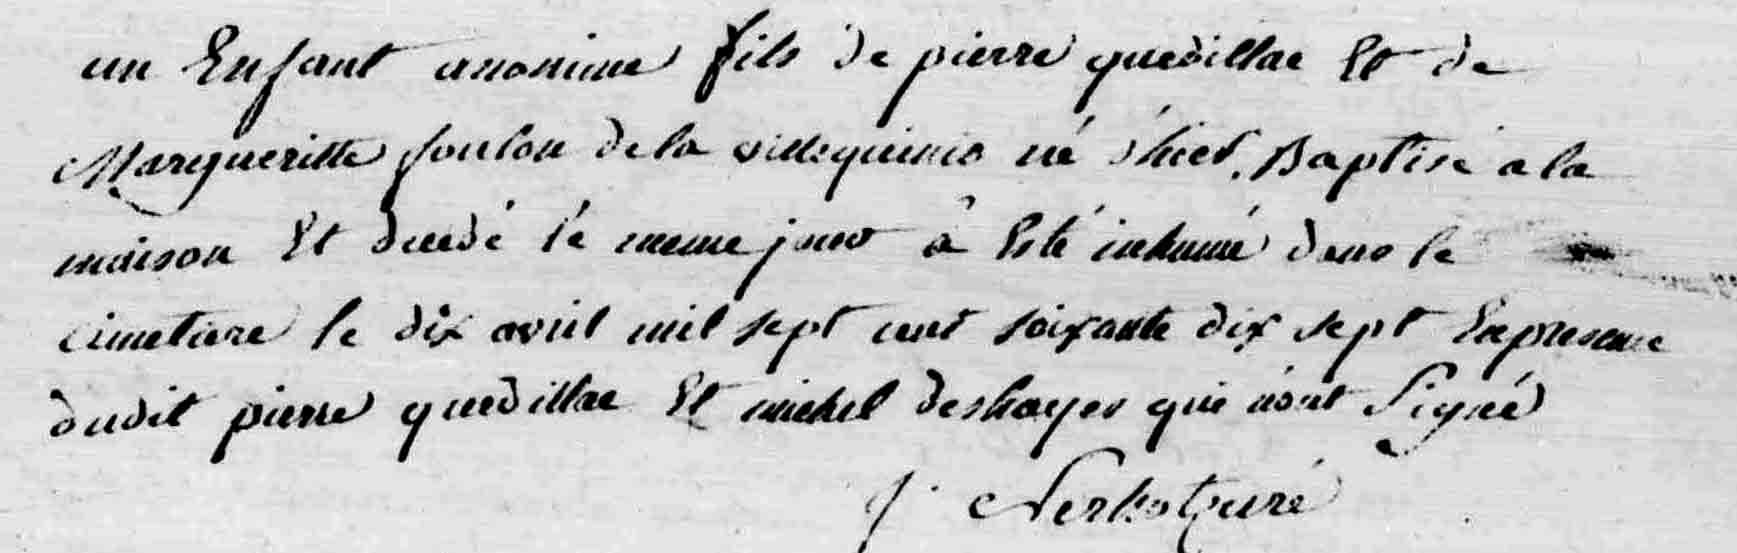 un Enfant anonime fils de pierre quedillac Et de
Margueritte foulon de la villeguinio né d'hier, Baptisé a la
maison Et decedé le meme jour a Esté inhumé dans le
cimetiere le dix avril mil sept cent soixante dix sept En presence
dudit pierre quedillac Et michel deshayes qui n'ont Signé